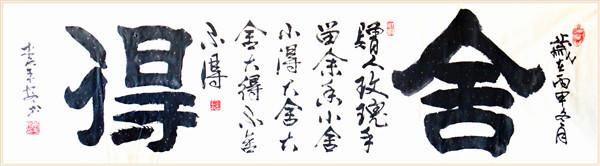 歲在丙申冬月
舍
贈人玫瑰手
留余香小舍
小得大舍大
舍大得不舍
不得
得